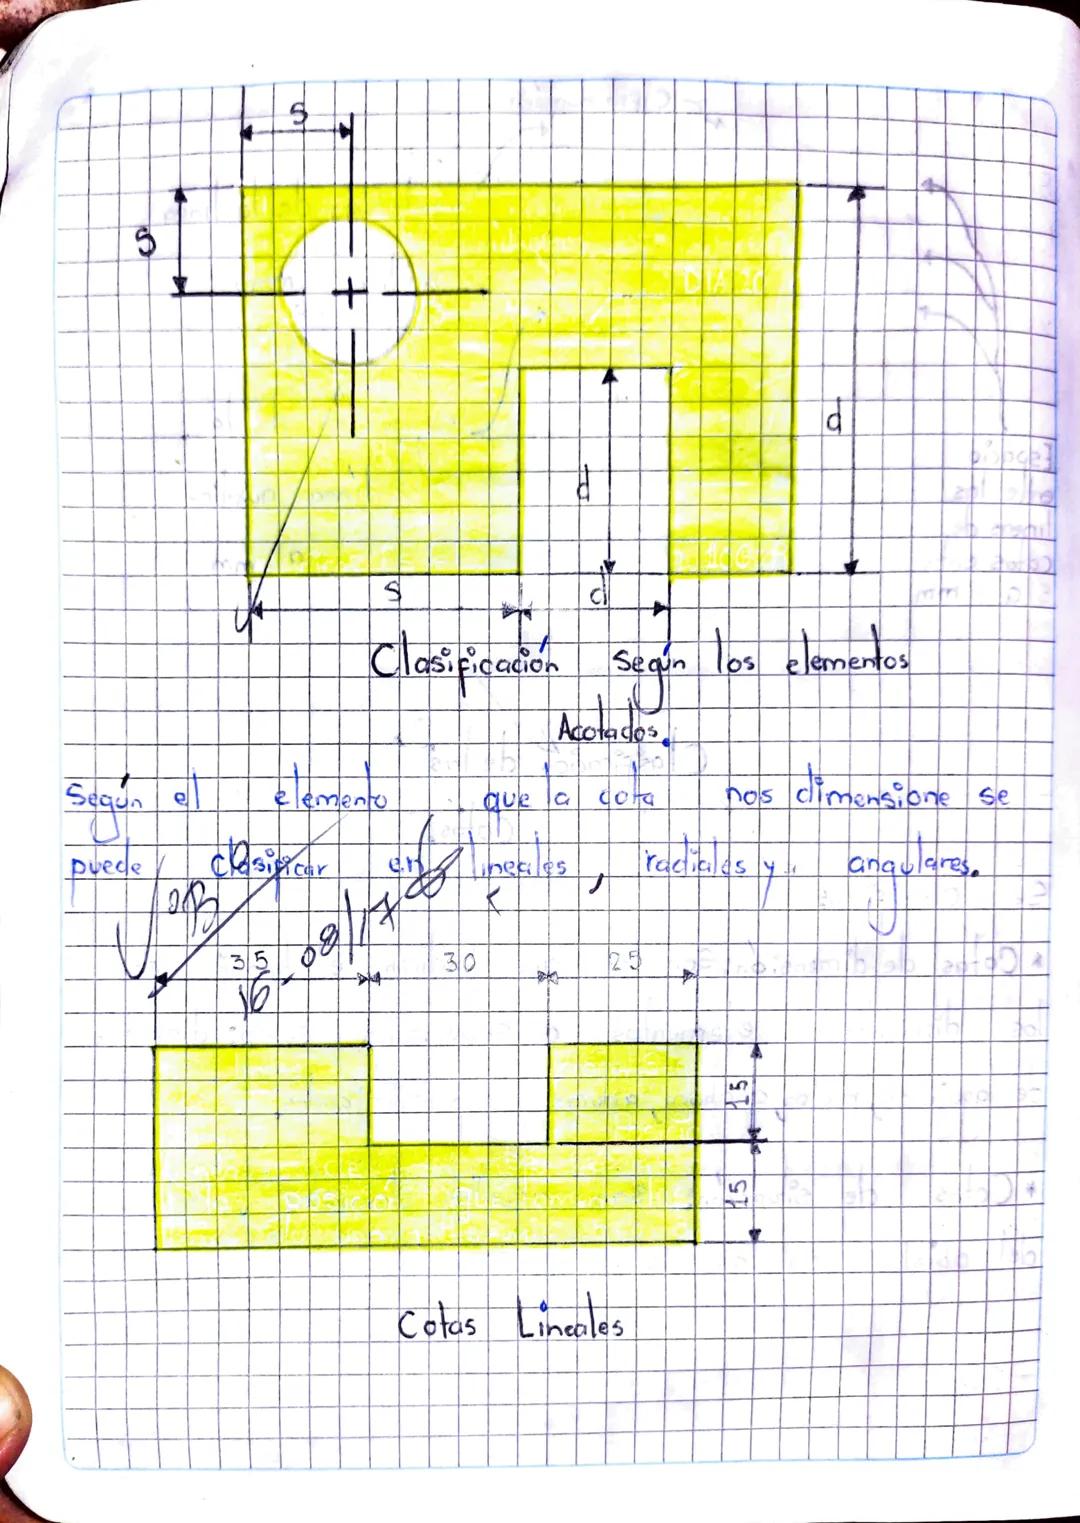 S
S
d
d
S
d
Clasificación según los elementos
Acotados.
Según el elemento que la cota nos dimensione se
puede clasificar en lineales, radiales y angulares.
16-08/17
35 30 25
15
15
Cotas Lineales